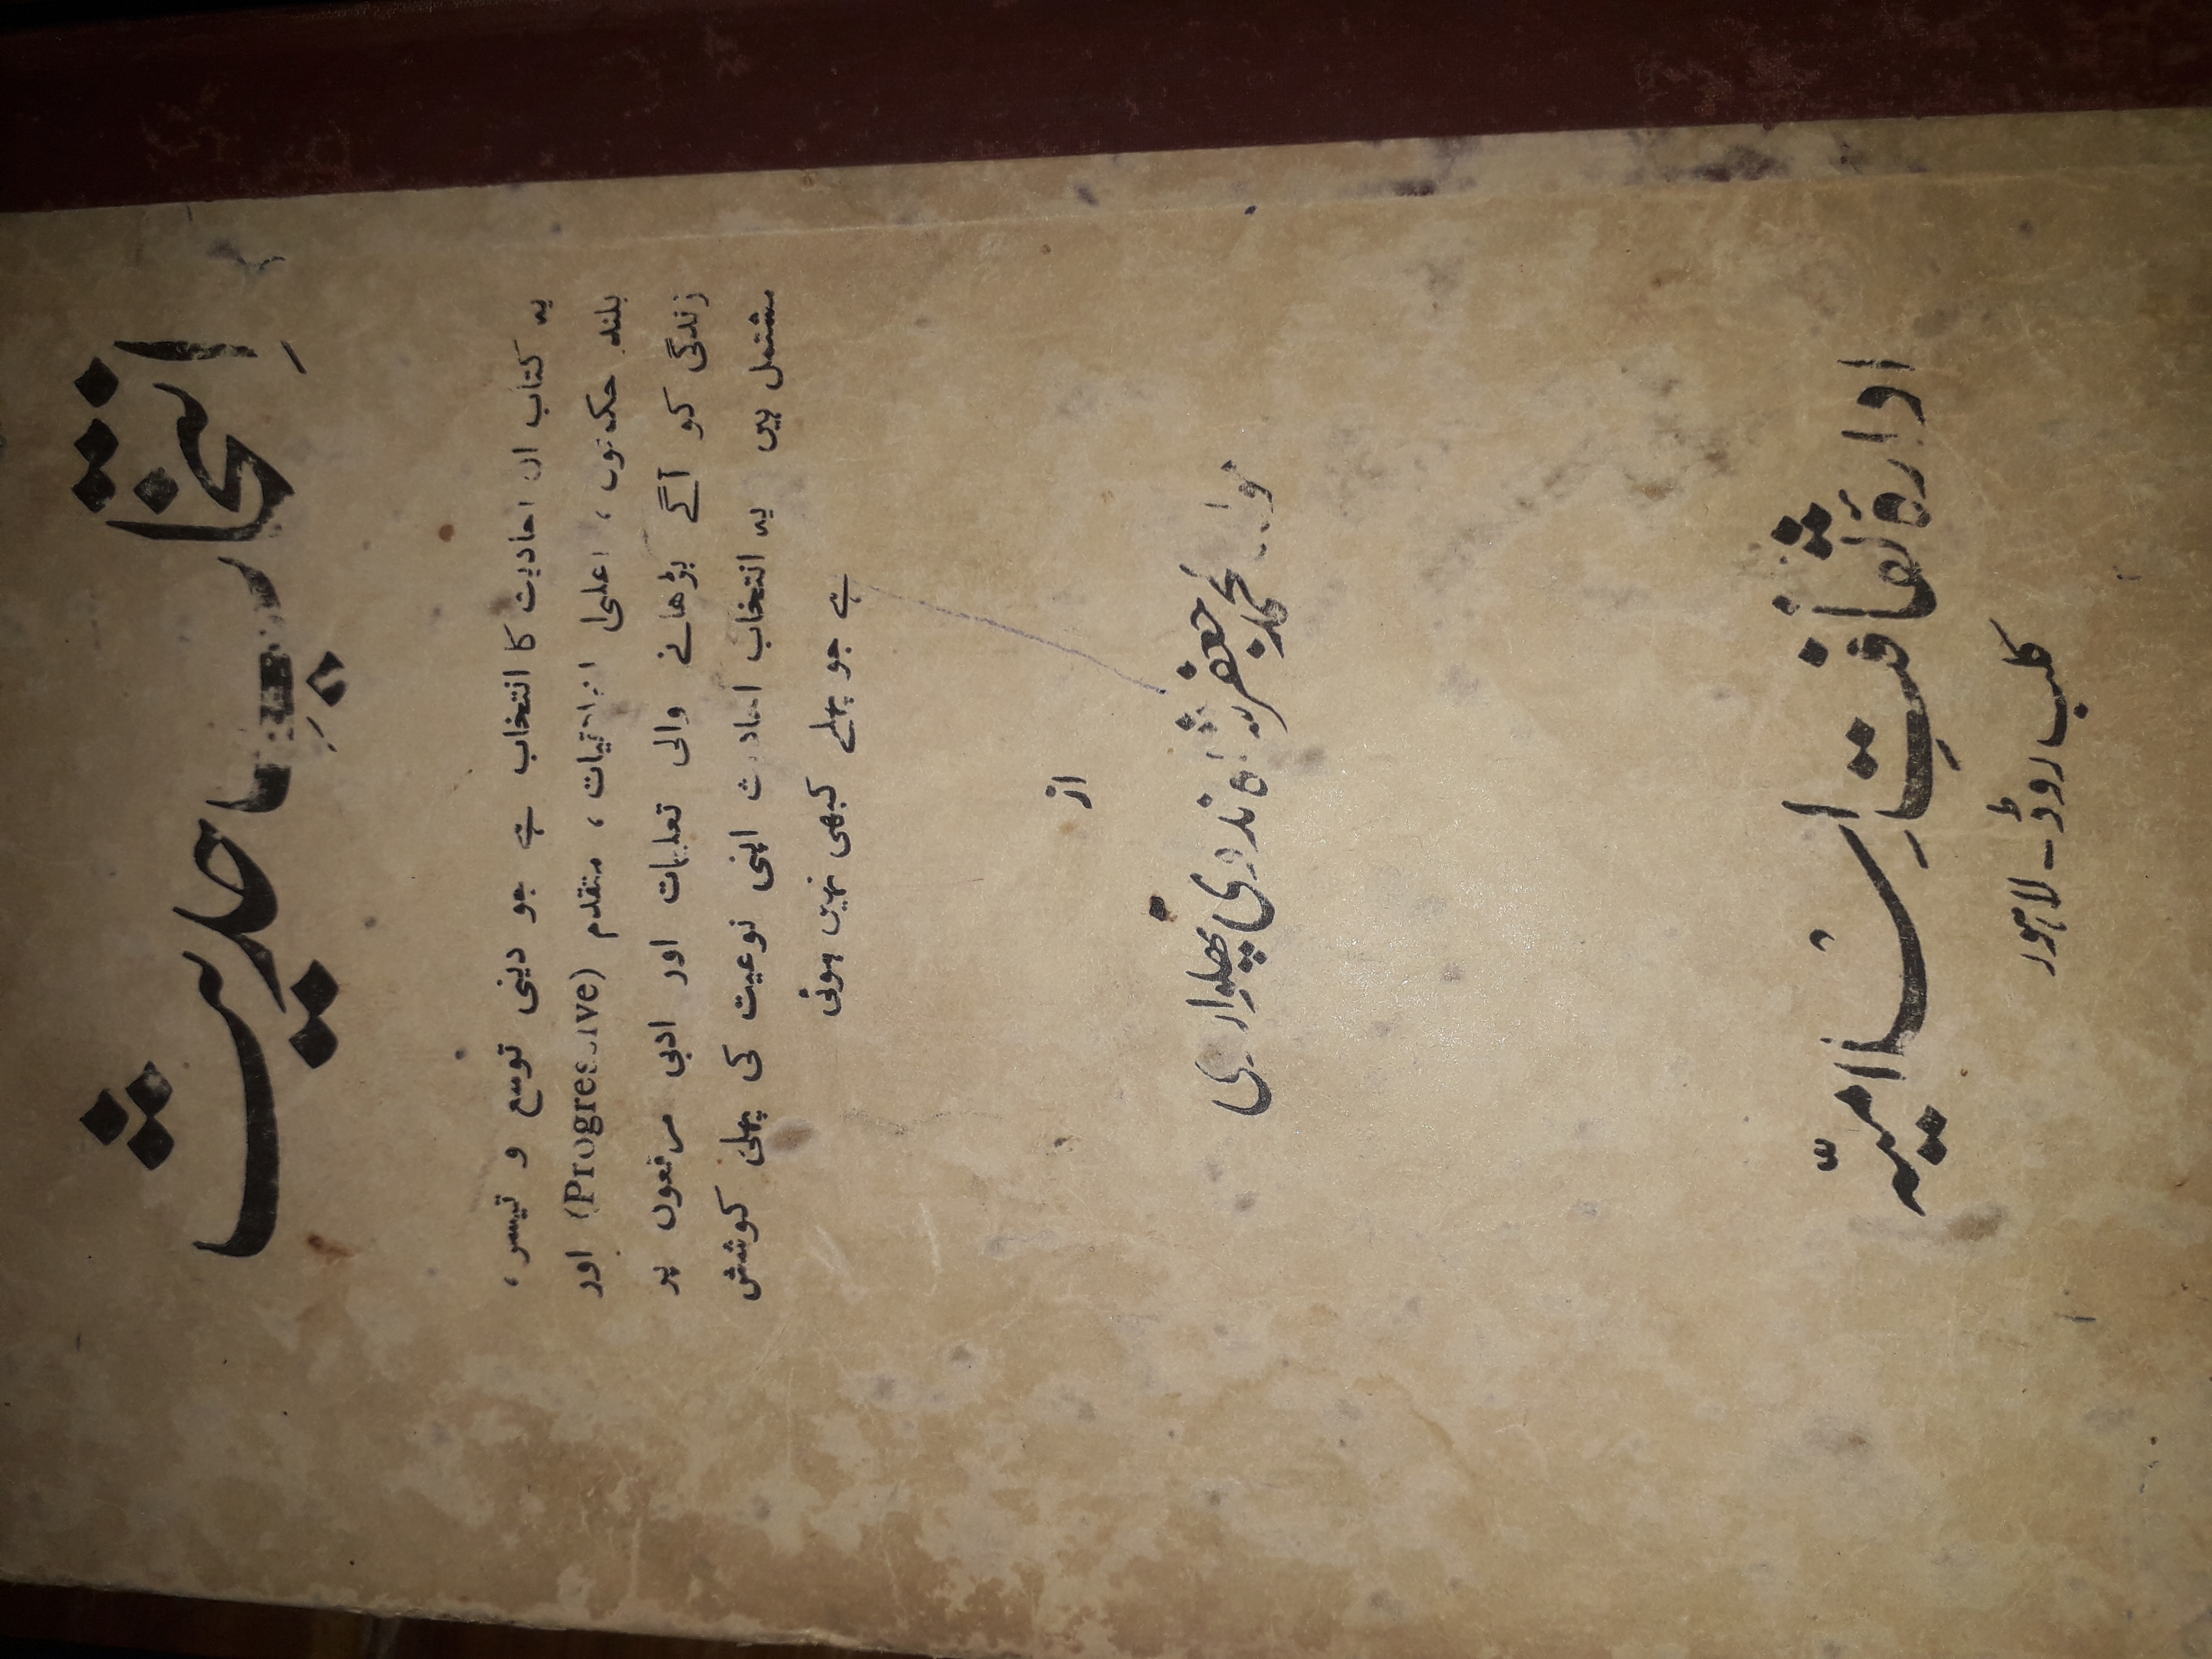 اِنتخابِ حدیث
یہ کتاب ان احادیث کا انتخاب ہے جو دینی توسع و تیسر،
بلند حکمتوں، اعلیٰ اخلاقیات، متقدم (Progressive) اور
زندگی کو آگے بڑھانے والی تعلیمات اور ادبی مرقعوں پر
مشتمل ہیں یہ انتخاب احادیث اپنی نوعیت کی پہلی کوشش
ہے جو پہلے کبھی نہیں ہوئی
از
مولانا محمد جعفر شاہ ندوی پھلواروی
ادارۂ ثقافتِ اسلامیہّ
کلب روڈ - لاہور